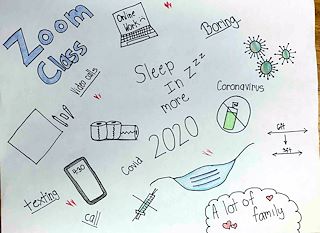 Zoom
Class
Online
Work
Boring
Video calls
Sleep
In zzz
more
Coronavirus
2020
Covid
6ft
4:30
texting
call
A lot of
family